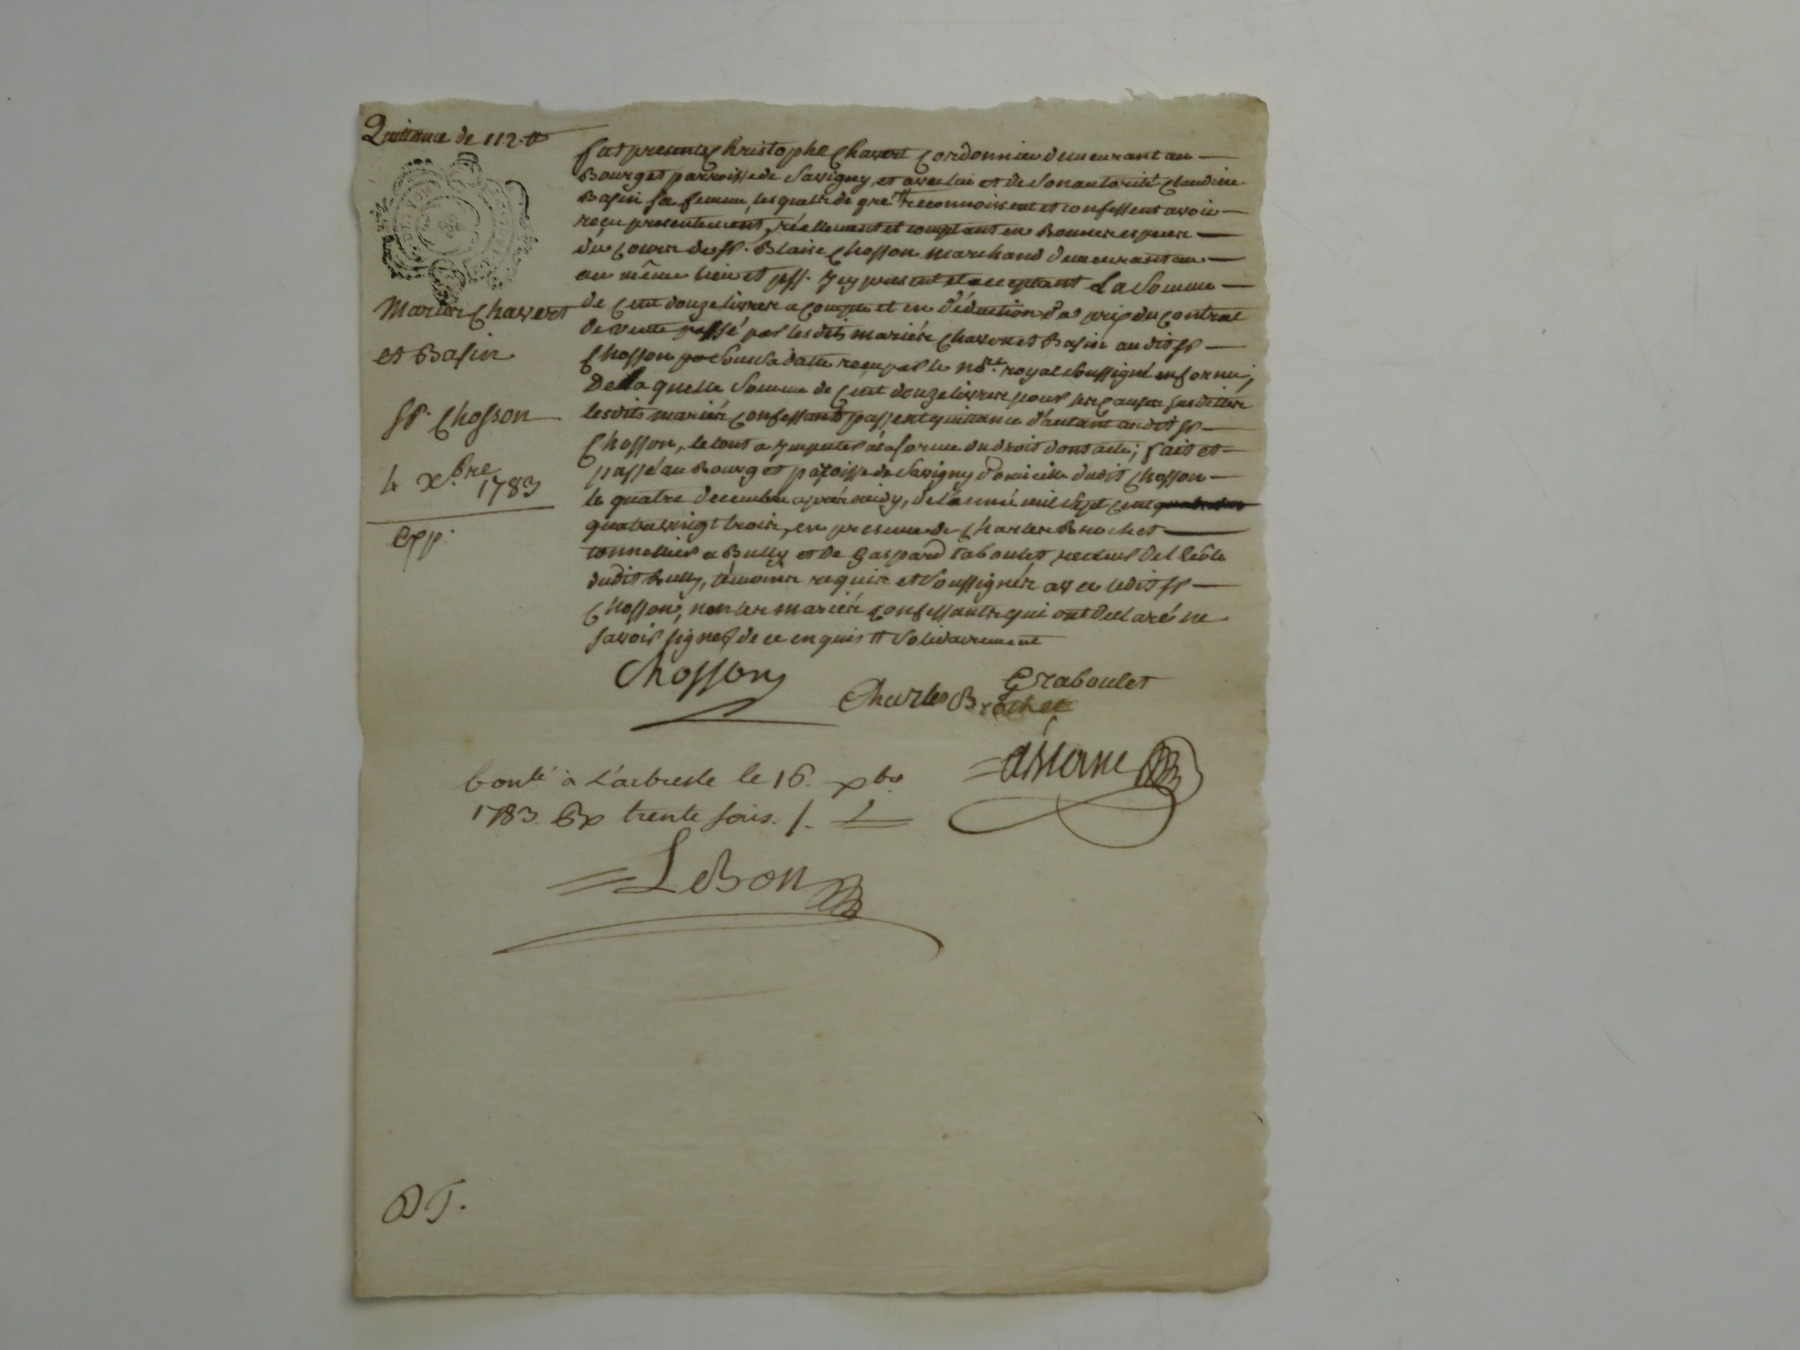 Quittance de 112 ₶
Mariés Chavert
et Basin
Sr. Chosson
4 Xbre 1783
Exp.
fut present Christophe Chavert Cordonnier demeurant au
Bourg et parroisse de Savigny, et avec lui et de son autorité Claudine
Basin sa femme, lesquels de gré ₶ reconnoissent et confessent avoir
reçu presentement, réellement et comptant en bonnes especes
du cours de Sr. Blaise Chosson marchand demeurant au
au même lieu et psse. icy present et acceptant La Somme
de Cent douze livres a compte et en déduction du prix du contrat
de vente passé par lesdits mariés Chavert et Basin audit Sr
Chosson sous sa datte reçu par le nore. royal soussigné en forme;
De laquelle Somme de Cent douze livres pour les causes susdittes
lesdits mariés confessants passent quittance d'autant audit Sr
Chosson, le tout a imputer a la forme du droit dont acte; fait et
passé au Bourg et paroisse de Savigny domicille dudit Chosson
le quatre decembre après midy, de l'année mil sept cent
quatre vingt trois, en presence de Charles Brochet
tonnellier a Bully et de Gaspard Raboulet recteur de l'école
dudit Bully, témoins requis et soussignés avec ledit Sr
Chosson, non les mariés confessants qui ont declaré ne
savoir signer de ce enquis ₶ solidairement
Chosson
G Raboulet
Charles Brochet
bonlé à L'arbresle le 16. xbre
1783. Rx trente sous. /.
LeBon
DT.